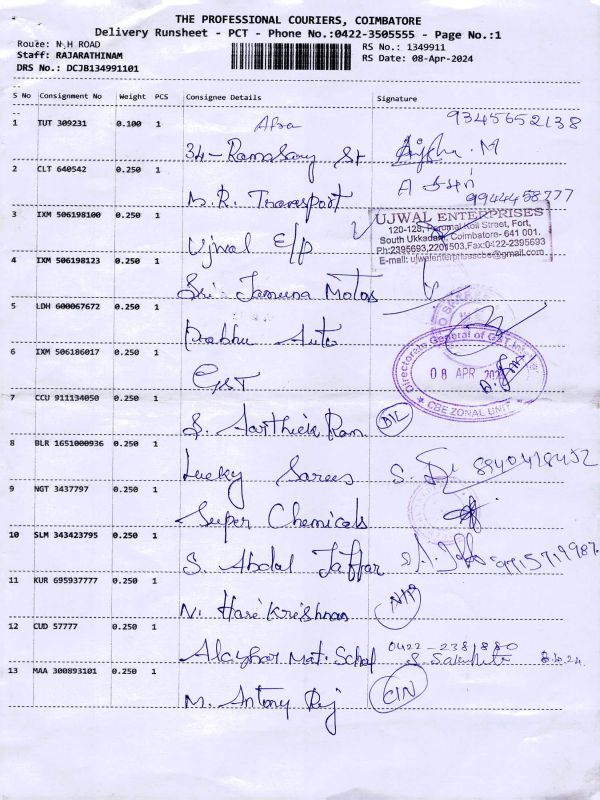 THE PROFESSIONAL COURIERS, COIMBATORE
Delivery Runsheet - PCT - Phone No.:0422-3505555 - Page No.:1
Route: N H ROAD
Staff: RAJARATHINAM
DRS No.: DCJB134991101
RS No.: 1349911
RS Date: 08-Apr-2024
S No Consignment No Weight PCS Consignee Details Signature
1 TUT 309231 0.100 1 9345652138
34-Ramasamy St M
2 CLT 640542 0.250 1
M.R. Transport 9944458777
3 IXM 506198100 0.250 1
Ujwal E/p
UJWAL ENTERPRISES
120-128, Perumal Koil Street, Fort,
South Ukkadam, Coimbatore- 641 001.
Ph:2395693,2201503,Fax:0422-2395693
E-mail: ujwalenterprisescbe@gmail.com
4 IXM 506198123 0.250 1
Sri Jamuna Motors
5 LDH 600067672 0.250 1
Prabhu Auto
6 IXM 506186017 0.250 1
GST
Directorate General of GST
08 APR
CBE ZONAL UNIT
7 CCU 911134050 0.250 1
S. Aarthick Ram
8 BLR 1651000936 0.250 1
Lucky Sarees S. 8940418452
9 NGT 3437797 0.250 1
Super Chemicals
10 SLM 343423795 0.250 1
S. Abdal Jaffar
11 KUR 695937777 0.250 1
N. Harikrishnan
12 CUD 57777 0.250 1
Alayhar Mat. School 0422-2381880
13 MAA 300893101 0.250 1
M. Antony Raj